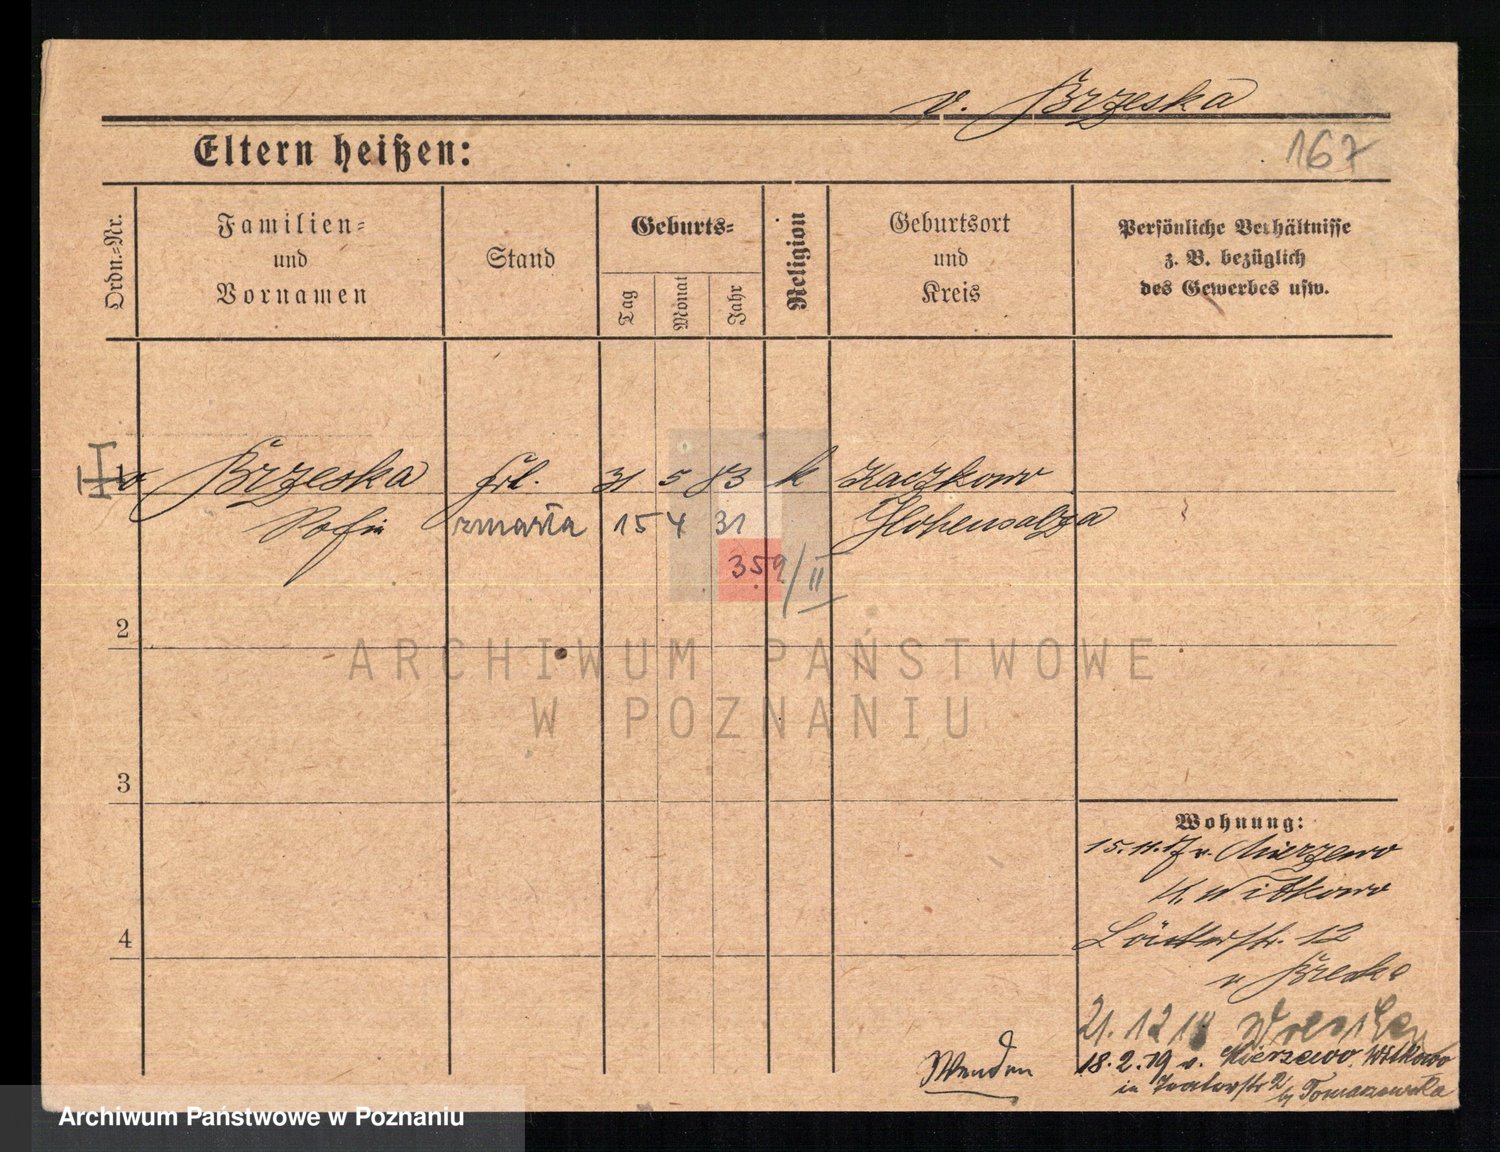 v. Brzeska
Eltern heißen:
167
Ordn.=Nr.
Familien=
und
Vornamen
Stand
Geburts=
Tag
Monat
Jahr
Religion
Geburtsort
und
Kreis
Persönliche Verhältnisse
z. B. bezüglich
des Gewerbes usw.
v Brzeska Frl. 31 5 83 k Kaczkowo
Sofie zmarła 15 4 31 Hohensalza
359/II
2
3
4
Wohnung:
15.11.17 v. Mierzewo
K. Witkowo
12
v Brzeska
21.12.18
18.2.19 v. Mierzewo, Witkowo
in 2 by Tomaszewska
Wenden
ARCHIWUM PAŃSTWOWE
W POZNANIU
Archiwum Państwowe w Poznaniu